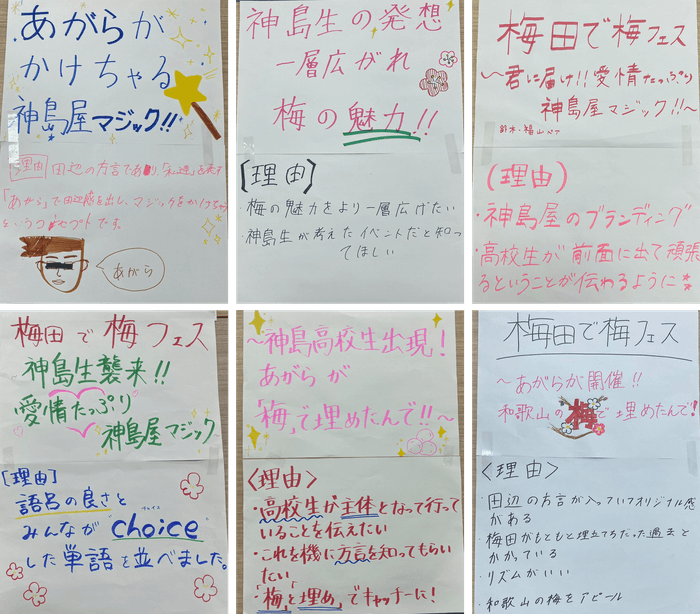 あがらが
かけちゃる
神島屋マジック!!
理由 田辺の方言であり、「私達」を表す
「あがら」で田辺感を出し、マジックをかけちゃう
というコンセプトです。
あがら
神島生の発想
一層広がれ
梅の魅力!!
【理由】
・梅の魅力をより一層広げたい
・神島生が考えたイベントだと知っ
てほしい
梅田で梅フェス
〜君に届け!!愛情たっぷり
神島屋マジック!!〜
鈴木・福山ペア
(理由)
・神島屋のブランディング
・高校生が前面に出て頑張
るということが伝わるように
梅田で梅フェス
神島生襲来!!
愛情たっぷり
神島屋マジック
[理由]
語呂の良さと
みんなが"choice"
チョイス
した単語を並べました。
〜神島高校生出現!
あがらが
「梅」で埋めたんで!!〜
<理由>
・高校生が主体となって行って
いることを伝えたい
・これを機に方言を知ってもらい
たい
・「梅」と「埋め」でキャッチーに!
梅田で梅フェス
〜あがらが開催!!
和歌山の梅で埋めたんで!
<理由>
・田辺の方言が入っていてオリジナル感
がある
・梅田がもともと埋立ちだった過去と
かかっている
・リズムがいい
・和歌山の梅をアピール